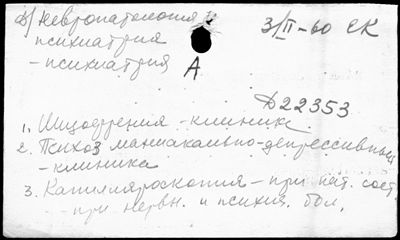 д) Невропатология и 3/II-60 СК
психиатрия
- психиатрия А
Д22353
1. Шизофрения - клиника
2. Психоз маниакально-депрессивный
- клиника
3. Капилляроскопия - при пат. сост.
- при нервн. и психич. бол.